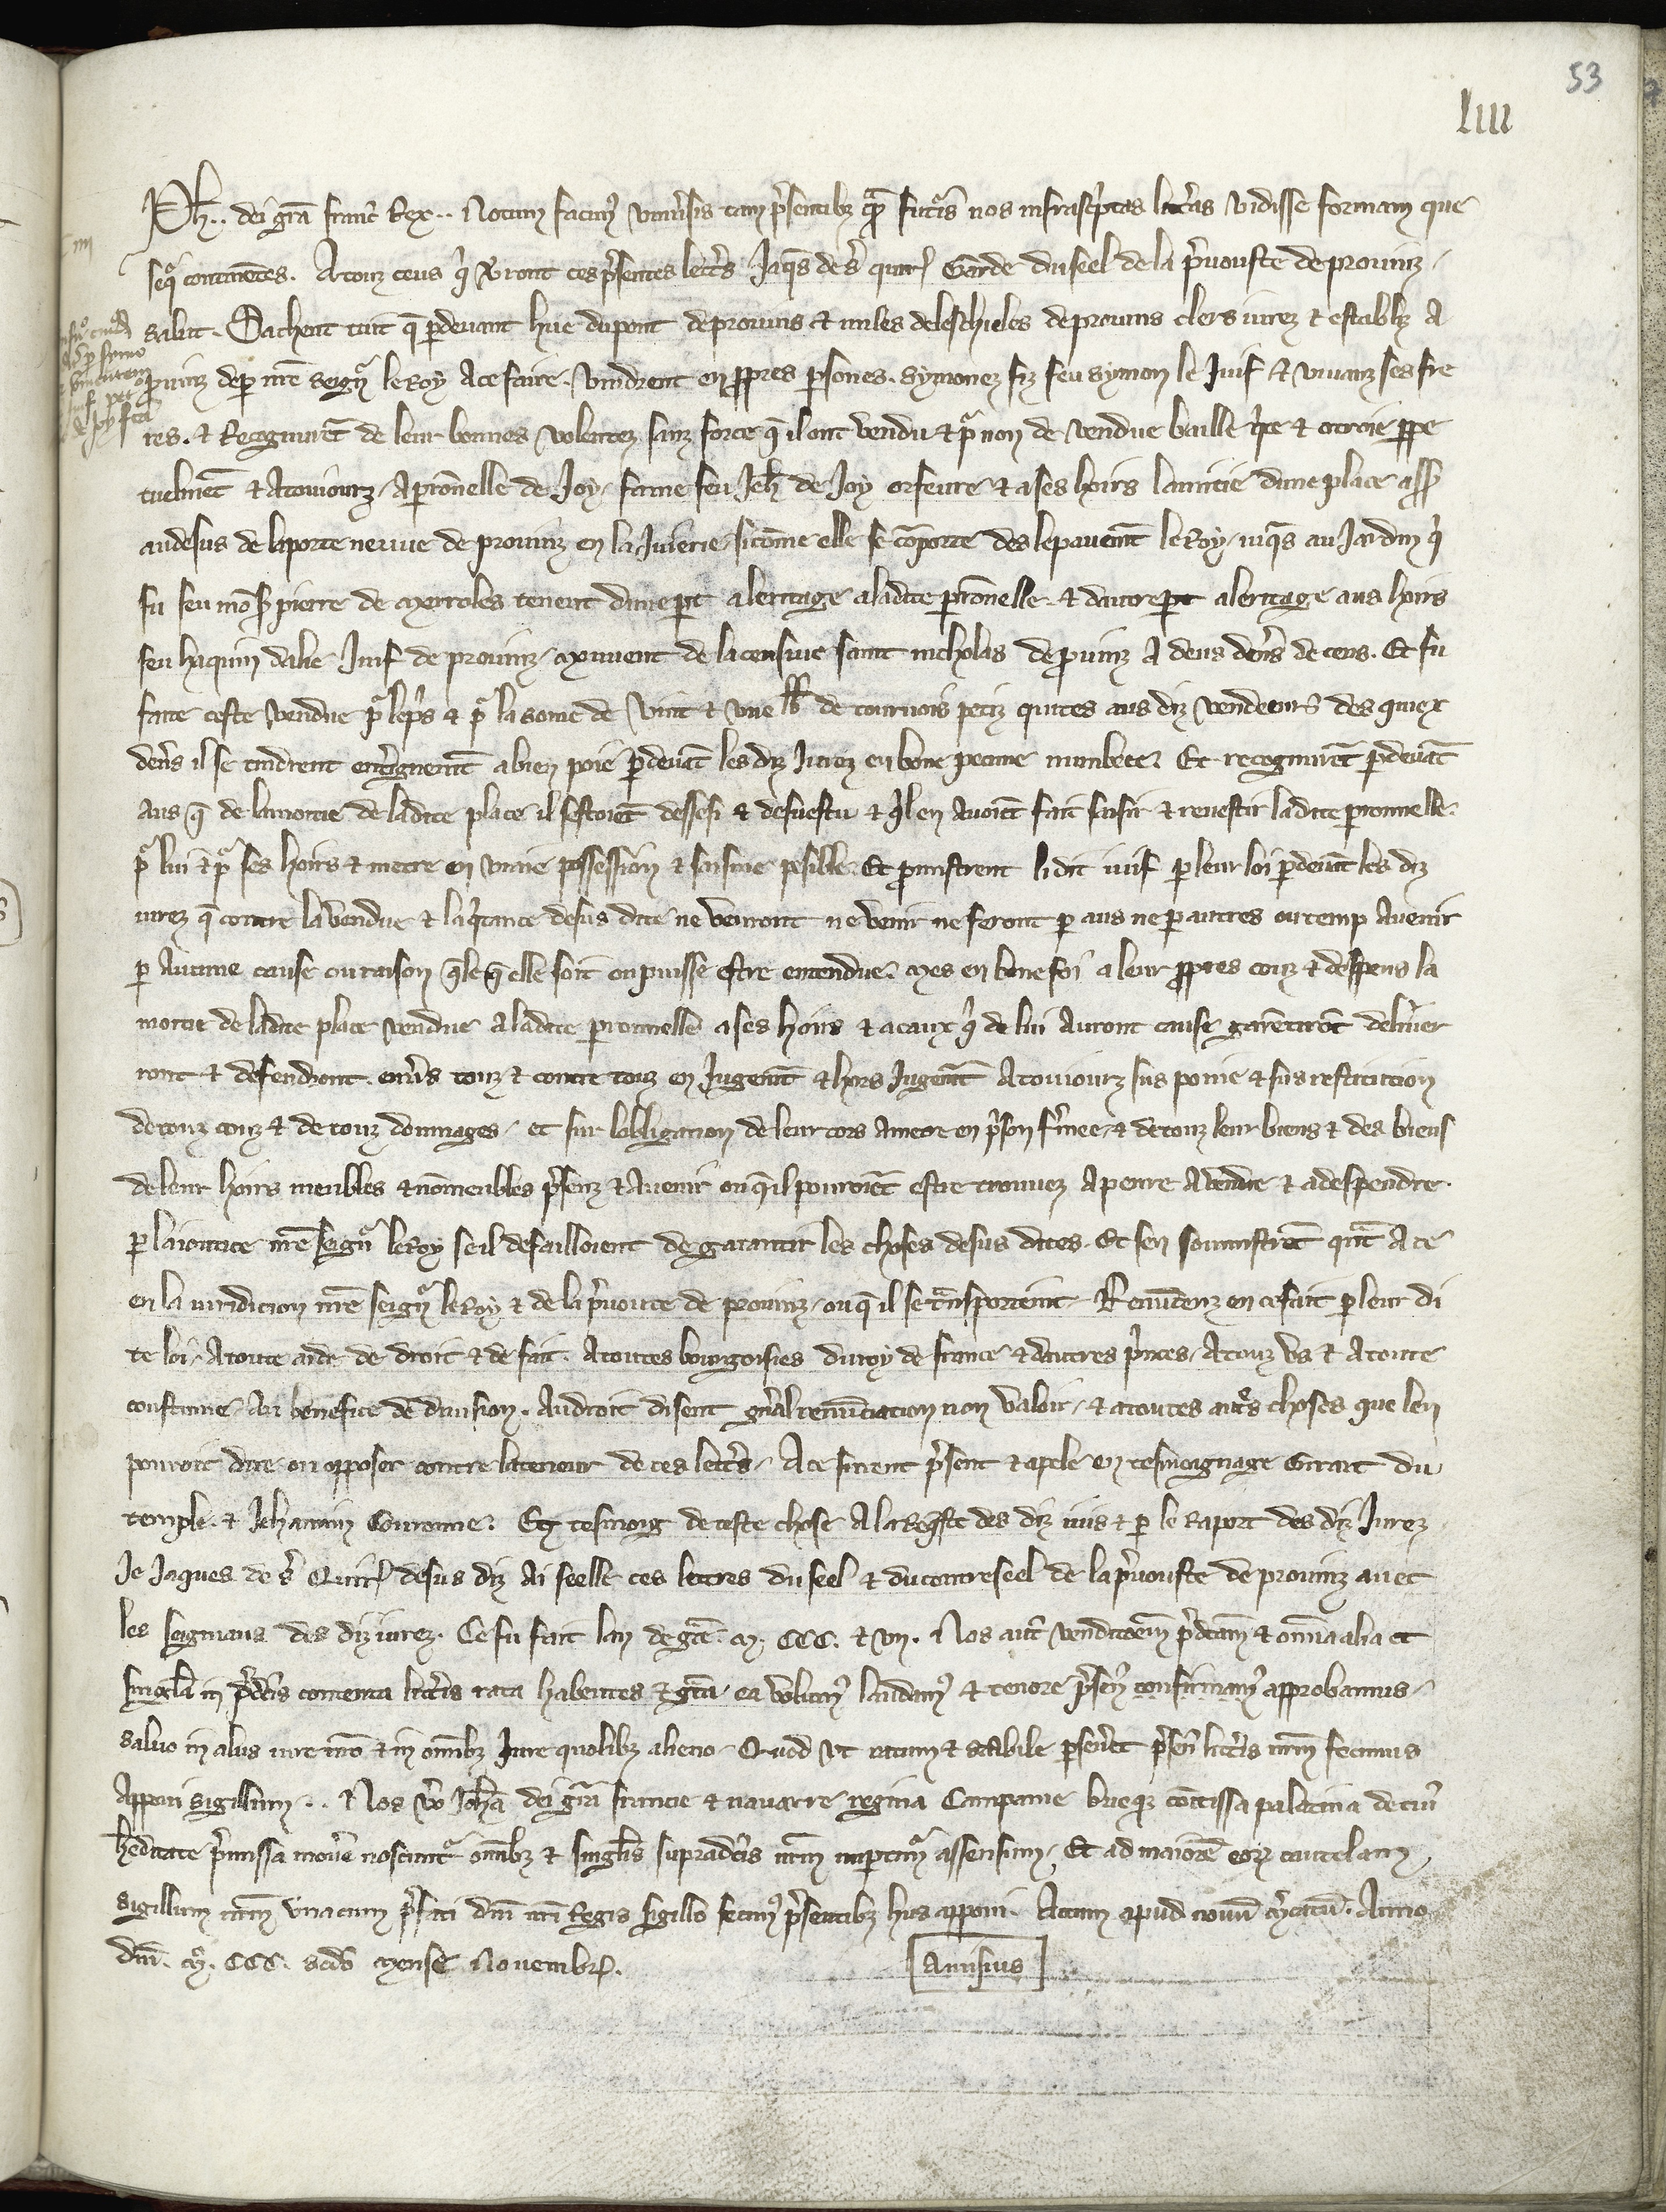 53
liii
Ph.. dei gra franc Rex.. Notum facimꝰ uniusis tam psentibz qm futis nos infrasciptas litas vidisse formam que
seqr continetes. A touz ceus q vront ces psentes lettres Jaqs de s quir Garde du seel de la puouste de prouinz
salut. Sachent tuit q p deuant hue du pont de prouins et miles deleschieles de prouins clers iurez et establiz A
prouinz de p nre seignr le Roy A ce faire. vindrent en ppres psones. Symonez fiz feu symon le Juif et viuanz ses fre
res. et Recognuret de leur bonnes volentez sanz force q il ont vendu et p non de vendue baillie qte et otroie ppe
tuelmet et A touiourz, A pronnelle de Joy, fame feu Jeh de Joy orfeure et a ses hoirs la mitie dune place assis
audesus de la porte neuue de prouinz en la Juierie, sicome elle se coporte des le pauement le Roy, iuqs au Jardin q
fu feu mons pierre de Merroles tenent dune pt a leritage a ladite pronnelle et dautre pt a leritage aus hoirs
feu haquin dalie Juif de prouinz, Mouuent de la censiue saint nicholas de prouinz A deus deniers de cens. Et fu
faite ceste vendue p le ps et p la some de vint et une lb de tournois petiz quites aus diz vendeeurs des quiex
deniers il se tindrent enterignement a bien poie p deuat les diz Jurez en bone pecune nunbree. Et recognuret p deuat
aus q de la moitie de ladite place il sestoiet dessesi et desuestu et qlen Auoiet fait sesir et reuestir ladite pronnelle
p lui et p ses hoirs et metre en uraie possession et sesine pesible. Et promistrent li dit iuif p leur loi p deuat les diz
iurez q contre la vendue et la qtance desus dite ne venront ne venir ne feront p aus ne p autres ou temp Auenir
p Aucune cause ou raison qle q elle soit ou puisse estre entendue. Mes en bone foi a leur ppres couz et despens la
moitie de ladite place vendue a ladite pronnelle a ses hoirs et a ceux q de lui Auront cause garetirot deliuer
ront et defendront. enuers touz et contre touz en Jugemt et hors Jugemt A touiourz sus poine et sus restitucion
de touz couz et de touz domages, et sur lobligacion de leur cors A metre en pson fmee, et de touz leur biens et des biens
de leur hoirs meubles et no meubles psenz et Auenir ou q il pourroiet estre trouuez A penre A vendre et a despendre
p la ioutice nre seignr le Roy se il defailloient de garantir les choses desus dites. Et sen soumistret quat A ce
en la iuridicion nre seignr le Roy et de la puoute de prouinz, ou q il se transporteint. Renucienz en ce fait p leur di
te loi, A toute aide de droit et de fait. A toutes bourgoisies du roy de france et dautres pnces, A touz vs et A toute
coustume, Au benefice de diuision. Au droit disent gnal renunciacion non valoir, et a toutes autres choses que len
pourroit dire ou opposer contre la teneur de ces lettres, A ce furent psent et apele en tesmoignage Girart du
temple. et Jehannin Couronne. En tesmoing de ceste chose A la Reqste des diz iuis et p le Raport des diz Jurez
Je Jaques de s Quir desus diz Ai seelle ces lettres du seel et du contreseel de la puouste de prouinz auec
les seignaus des diz iurez. Ce fu fait lan de gce M. CCC. et vn. Nos aut venditoem pdcam et omnia alia et
singla in pdcis contenta litis rata habentes et gta, ea volumꝰ laudamꝰ et tenore psenꝰ confirmamꝰ approbamus,
saluo in aliis iure nro et in omibz Jure quolibz alieno. Quod vt ratum et stabile pseueret psen litis nrm fecimus
Apponi sigillum... Nos vo Joha dei gra francie et nauarre regina Campanie brieqz comitissa palatina de cuiꝰ
heditate pmissa moueri noscuntr omibz et singlis supradcis nrm imptimr assensum, Et ad maiore eoꝝ cautelam
sigillum nrm vna cum pfati dni nri Regis sigillo fecimꝰ psentibz hiis apponi. Actum apud nouu mcatu. Anno
dni. M. CCC. scdo Mense Nouembr.
Amisius